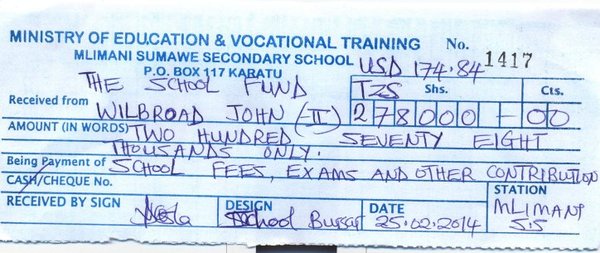 MINISTRY OF EDUCATION & VOCATIONAL TRAINING No. 1417
MLIMANI SUMAWE SECONDARY SCHOOL
P.O. BOX 117 KARATU
USD 174.84
THE SCHOOL FUND
TZS Shs. Cts.
Received from WILBROAD JOHN (-II) 278000 - 00
AMOUNT (IN WORDS) TWO HUNDRED SEVENTY EIGHT
THOUSANDS ONLY.
Being Payment of SCHOOL FEES, EXAMS AND OTHER CONTRIBUTION
CASH/CHEQUE No.
RECEIVED BY SIGN
DESIGN School Bursar
DATE 25.02.2014
STATION
MLIMANI
S.S